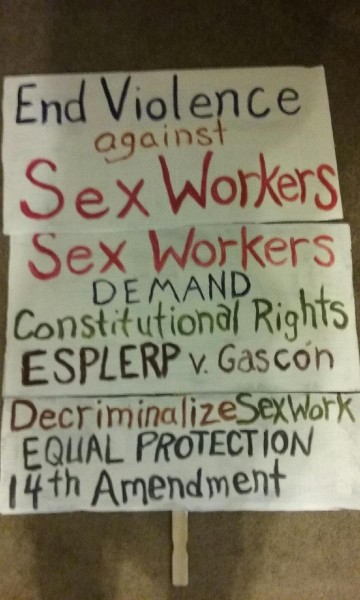 End Violence
against
Sex Workers
Sex Workers
DEMAND
Constitutional Rights
ESPLERP v. Gascón
Decriminalize Sex Work
EQUAL PROTECTION
14th Amendment